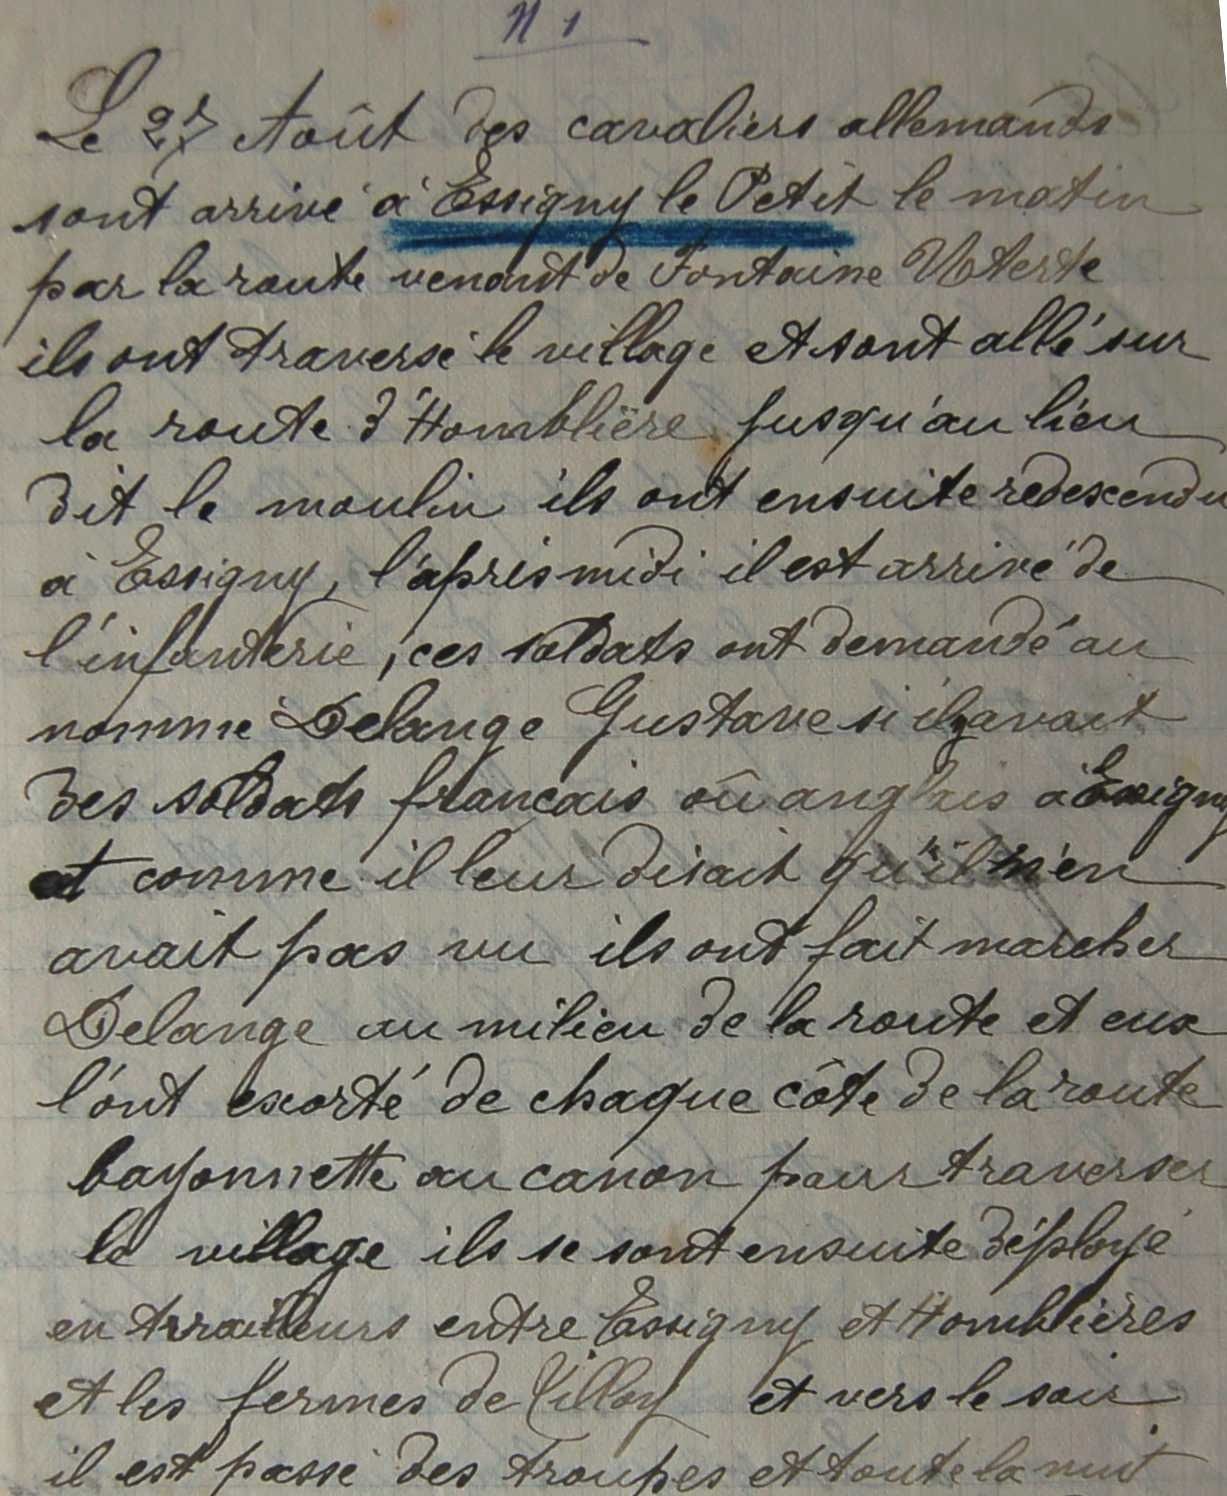 N 1
Le 27 Août des cavaliers allemands
sont arrivé à Essigny le Petit le matin
par la route venant de Fontaine Uterte
ils ont traversé le village et sont allé sur
la route d'Homblière jusqu'au lieu
dit le moulin ils ont ensuite redescendu
à Essigny, l'après midi il est arrivé de
l'infanterie, ces soldats ont demandé au
nommé Delange Gustave si il y avait
des soldats français oû anglais à Essigny
et comme il leur disait qu'il n'en
avait pas vu ils ont fait marcher
Delange au milieu de la route et eux
l'ont escorté de chaque côte de la route
bayonnette au canon pour traverser
le village ils se sont ensuite déployé
en tirailleurs entre Essigny et Homblières
et les fermes de Tilloy et vers le soir
il est passé des troupes et toute la nuit